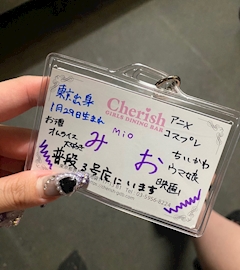 東京出身
1月29日生まれ
Cherish
GIRLS DINING BAR
アニメ
コスプレ
お酒
オムライス
大好き
mio
みお
ちいかわ
ウマ娘
映画
普段3号店にいます